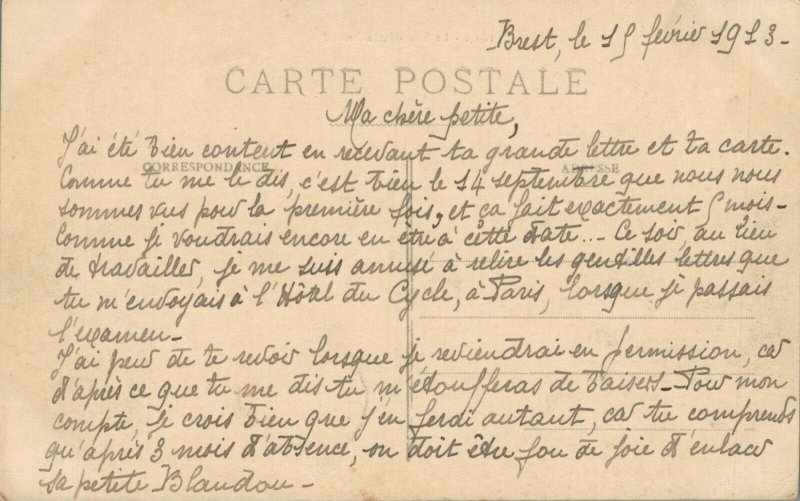 Brest, le 15 février 1913-
CARTE POSTALE
Ma chère petite,
J'ai été bien content en recevant ta grande lettre et ta carte.
CORRESPONDANCE
ADRESSE
Comme tu me le dis, c'est bien le 14 septembre que nous nous
sommes vus pour la première fois, et ça fait exactement 5 mois-
Comme je voudrais encore en être à cette date... Ce soir, au lieu
de travailler, je me suis amusé à relire les gentilles lettres que
tu m'envoyais à l'Hôtel du Cycle, à Paris, lorsque je passais
l'examen-
J'ai peur de te revoir lorsque je reviendrai en permission, car
d'après ce que tu me dis tu m'étoufferas de baisers- Pour mon
compte, je crois bien que j'en ferai autant, car tu comprends
qu'après 3 mois d'absence, on doit être fou de joie d'enlacer
sa petite Blandou-